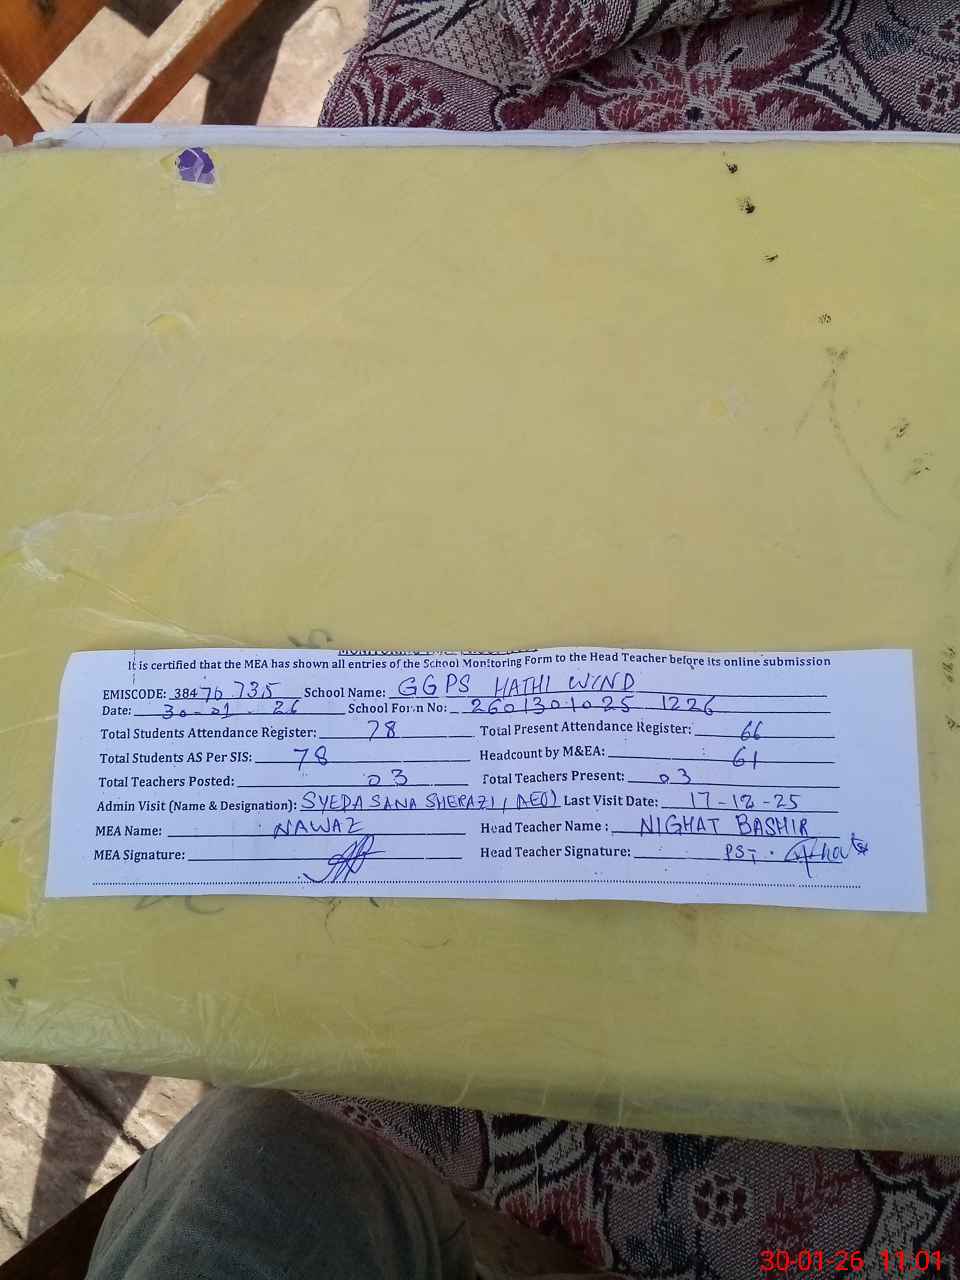 It is certified that the MEA has shown all entries of the School Monitoring Form to the Head Teacher before its online submission
EMISCODE: 38476735 School Name: GGPS HATHI WIND
Date: 30-01-26 School Form No: 2601301025 1226
Total Students Attendance Register: 78 Total Present Attendance Register: 66
Total Students AS Per SIS: 78 Headcount by M&EA: 61
Total Teachers Posted: 03 Total Teachers Present: 03
Admin Visit (Name & Designation): SYEDA SANA SHERAZI, (AEO) Last Visit Date: 17-12-25
MEA Name: NAWAZ Head Teacher Name: NIGHAT BASHIR
MEA Signature: Head Teacher Signature: PST.
30-01-26 11:01